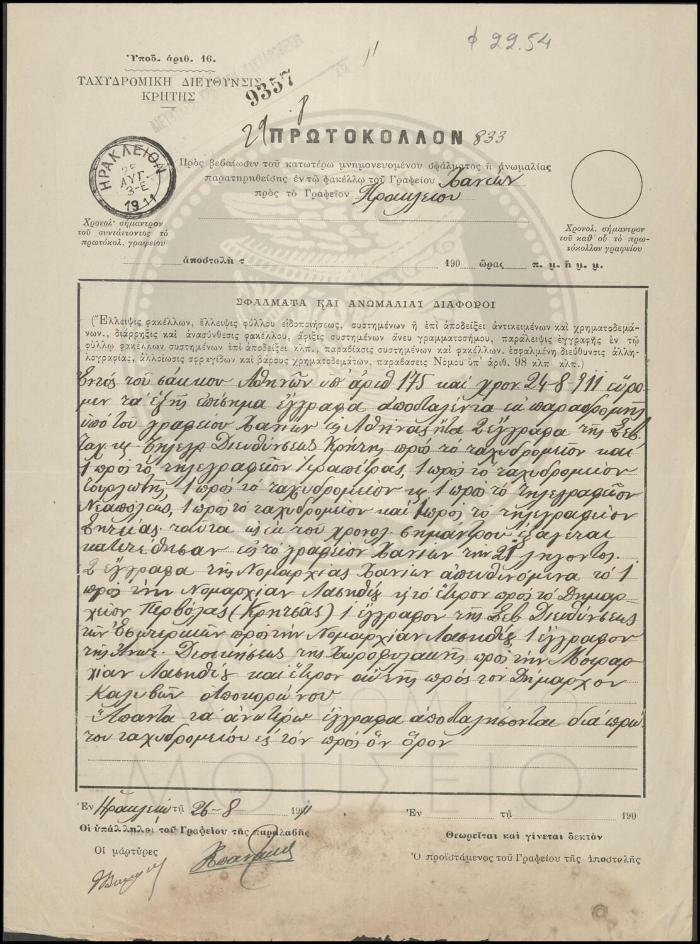 φ 22.54
Ὑποδ. ἀριθ. 16.
ΤΑΧΥΔΡΟΜΙΚΗ ΔΙΕΥΘΥΝΣΙΣ
ΚΡΗΤΗΣ
9357
29
ΠΡΩΤΟΚΟΛΛΟΝ 833
ΗΡΑΚΛΕΙΟΝ
25
ΑΥΓ.
3-Ε
1911
Πρὸς βεβαίωσιν τοῦ κατωτέρω μνημονευομένου σφάλματος ἢ ἀνωμαλίας
παρατηρηθείσης ἐν τῷ φακέλλῳ τοῦ Γραφείου Χανίων
πρὸς τὸ Γραφεῖον Ηρακλείου
Χρονολ. σήμαντρον
τοῦ συντάττοντος τὸ
πρωτόκολ. γραφείου
Χρονολ. σήμαντρον
τοῦ καθ' οὗ τὸ πρω-
τόκολλον γραφείου
ἀποστολὴ τ 190 ὥρας π. μ. ἢ μ. μ.
ΣΦΑΛΜΑΤΑ ΚΑΙ ΑΝΩΜΑΛΙΑΙ ΔΙΑΦΟΡΟΙ
(Ἔλλειψις φακέλλων, ἔλλειψις φύλλου εἰδοποιήσεως, συστημένων ἢ ἐπὶ ἀποδείξει ἀντικειμένων καὶ χρηματοδεμά-
των, διάρρηξις καὶ ἀνασύνθεσις φακέλλου, ἄφιξις συστημένων ἄνευ γραμματοσήμου, παράλειψις ἐγγραφῆς ἐν τῷ
φύλλῳ φακέλλων συστημένων ἐπὶ ἀποδείξει κλπ., παραβίασις συστημένων καὶ φακέλλων, ἐσφαλμένη διεύθυνσις ἀλλη-
λογραφίας, ἀλλοίωσις σφραγίδων καὶ βάρους χρηματοδεμάτων, παραβάσεις Νόμου ὑπ' ἀριθ. 98 κλπ κλπ.)
Ἐντὸς τοῦ σάκκου Ἀθηνῶν ὑπ' ἀριθ 175 καὶ χρον. 24-8-911 εὕρο-
μεν τὰ ἑξῆς ἐπίσημα ἔγγραφα ἀποσταλέντα ἐκ παραδρομῆς
ὑπὸ τοῦ γραφείου Χανίων εἰς Ἀθήνας ἤτοι 2 ἔγγραφα τῆς Σεβ.
Ταχ. κ Τηλεγρ Διευθύνσεως Κρήτης πρὸς τὸ ταχυδρομεῖον καὶ
1 πρὸς τὸ τηλεγραφεῖον Ἱεραπέτρας, 1 πρὸς τὸ ταχυδρομεῖον
Τουρλωτῆς, 1 πρὸς τὸ ταχυδρομεῖον κ 1 πρὸς τὸ τηλεγραφεῖον
Νεαπόλεως, 1 πρὸς τὸ ταχυδρομεῖον καὶ 1 πρὸς τὸ τηλεγραφεῖον
Σητείας ταῦτα ὡς ἐκ τοῦ χρονολ. σημάντρου ἐξάγεται
κατετέθησαν εἰς τὸ γραφεῖον Χανίων τὴν 21 λήγοντος.
2 ἔγγραφα τῆς Νομαρχίας Χανίων ἀπευθυνόμενα τὸ 1
πρὸς τὴν Νομαρχίαν Λασηθίου κ τὸ ἕτερον πρὸς τὸ Δημαρ-
χεῖον (Κρητσᾶς) 1 ἔγγραφον τῆς Σεβ Διευθύνσεως
τῶν Ἐσωτερικῶν πρὸς τὴν Νομαρχίαν Λασηθίου 1 ἔγγραφον
τῆς Ἀνωτ. Διοικήσεως τῆς Χωροφυλακῆς πρὸς τὴν Μοιραρ-
χίαν Λασηθίου καὶ ἕτερον τῆς πρὸς τὸν Δήμαρχον
Καλυβῶν Ἀποκορώνου
Ἅπαντα τὰ ἀνωτέρω ἔγγραφα ἀποσταλήσονται διὰ πρώ-
του ταχυδρομείου εἰς τὸν πρὸς ὃν ὅρον
Ἐν Ηρακλείῳ τῇ 26-8 1911
Ἐν τῇ 190
Οἱ ὑπάλληλοι τοῦ Γραφείου τῆς παραλαβῆς
Θεωρεῖται καὶ γίνεται δεκτὸν
Οἱ μάρτυρες
Ὁ προϊστάμενος τοῦ Γραφείου τῆς ἀποστολῆς
ΜΟΥΣΕΙΟ